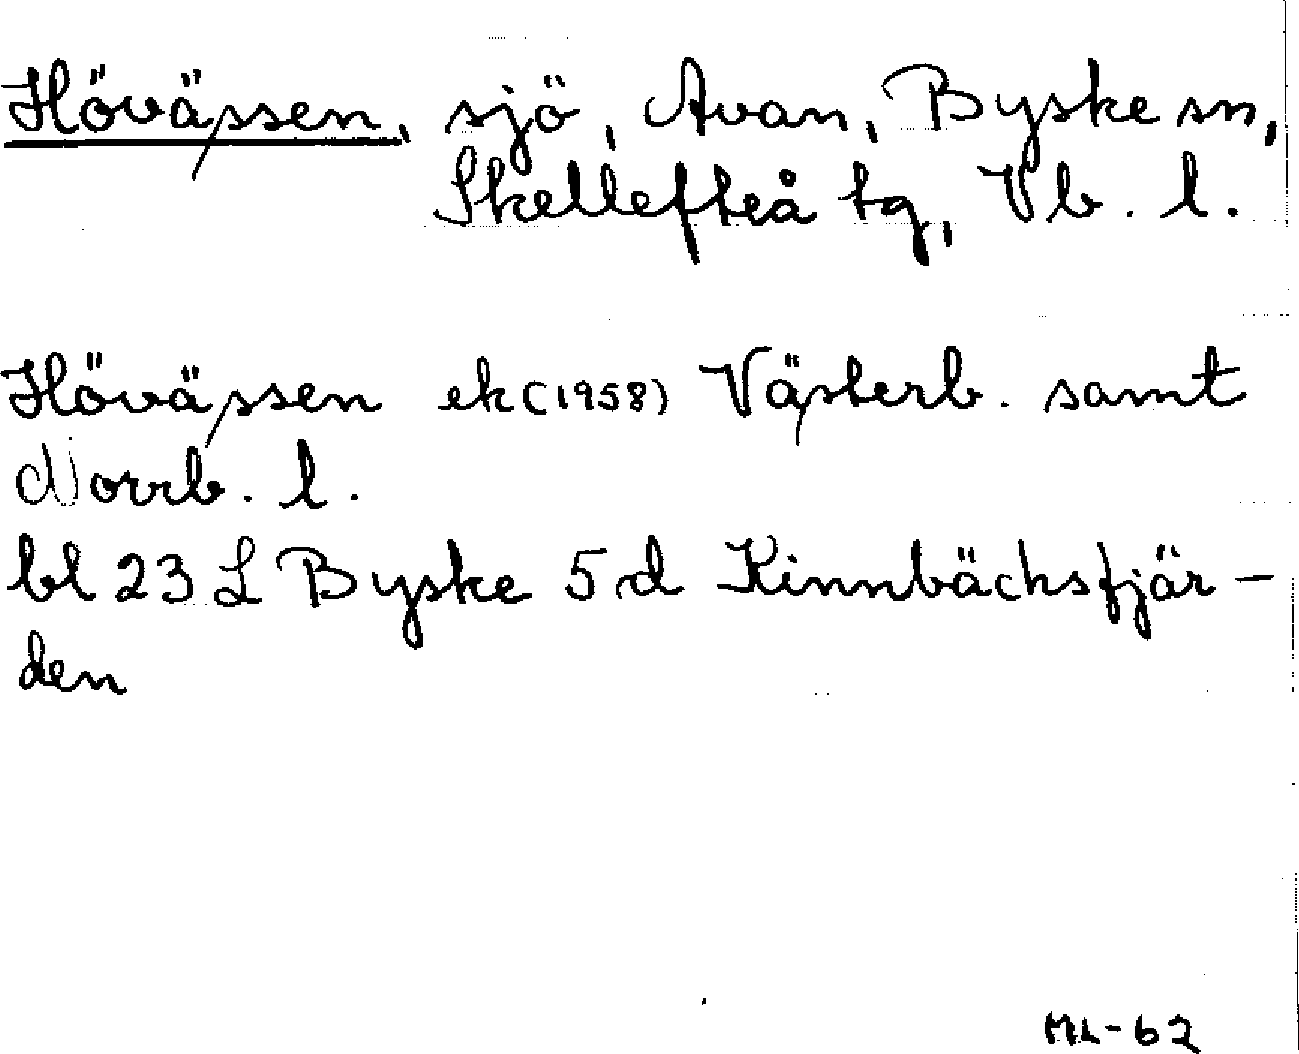 Hövässen, sjö, Avan, Byske sn,
Skellefteå tg, Vb. l.
Hövässen ek (1958) Västerb. samt
Norrb. l.
bl 23 L Byske 5 d Kinnbäcksfjär-
den
ML-62